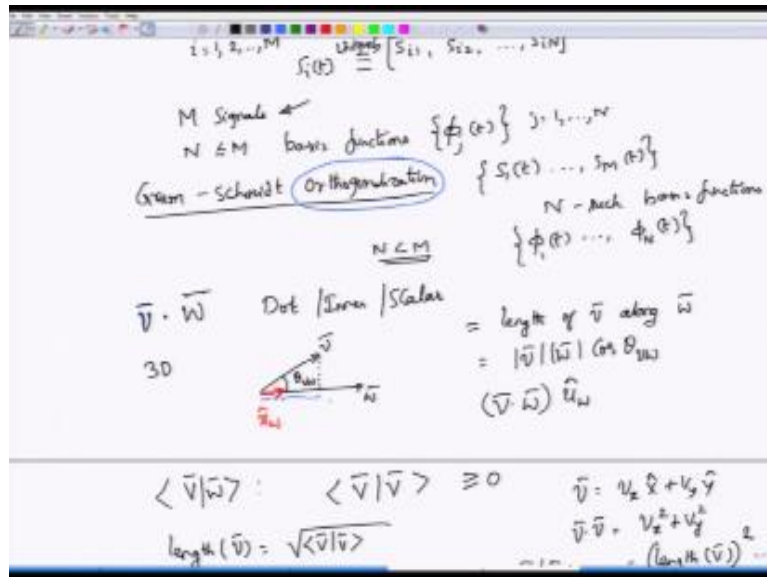 i=1, 2, .., M
S_i(t) ≡ [S_{i1}, S_{i2}, ..., S_{iN}]
M Signals
N ≤ M basis functions {φ_j(t)} j=1,..,N
Gram - Schmidt Orthogonalization {S_1(t) ..., S_M(t)}
N - such basis functions
N < M {φ_1(t) ..., φ_N(t)}
v̄ · w̄ Dot / Inner / Scalar = length of v̄ along w̄
3D v̄ θ_{vw} w̄ û_w = |v̄||w̄| Cos θ_{vw}
(v̄·w̄) û_w
< v̄|w̄> : < v̄|v̄ > ≥ 0 v̄ = v_x x̂ + v_y ŷ
v̄·v̄ = v_x^2 + v_y^2
length(v̄) = √<v̄|v̄> = (length(v̄))^2